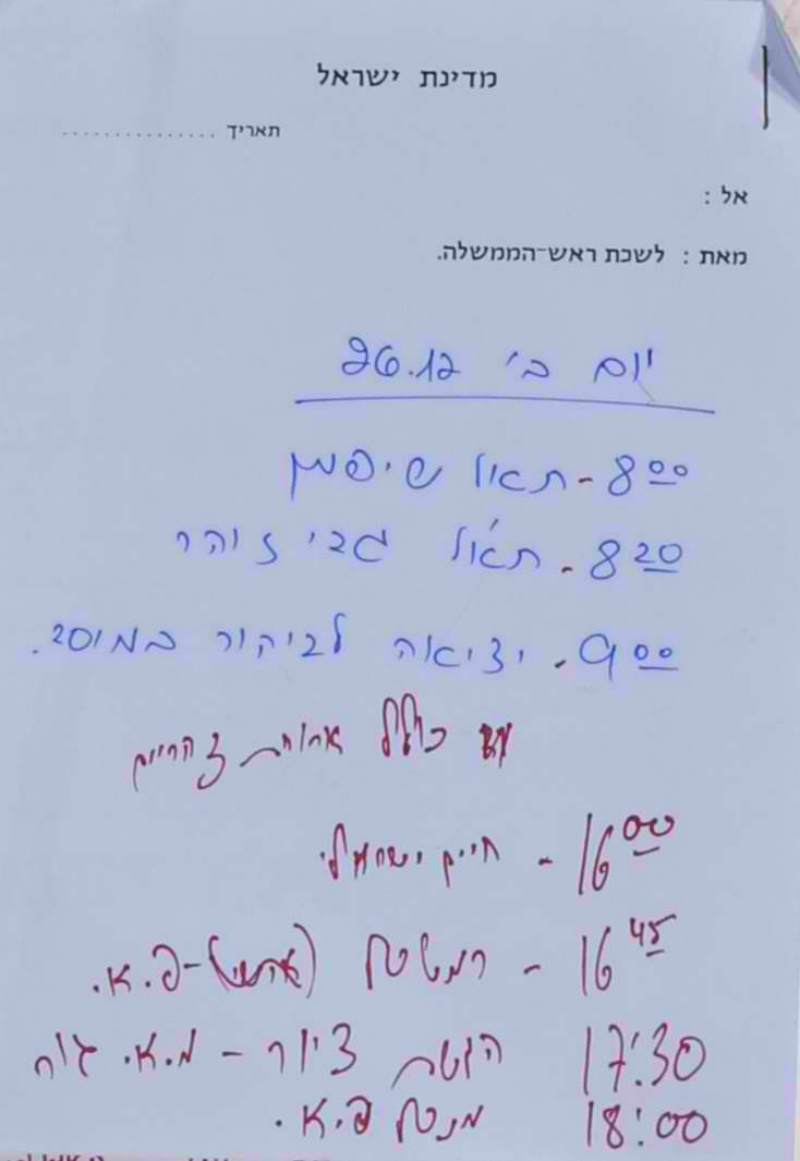 מדינת ישראל
תאריך ...............
אל :
מאת : לשכת ראש-הממשלה.
יום ב' 26.12
8:00 - תאל שיפמן
8:20 - תא"ל גבי זוהר
9:00 - יציאה לביקור במוסד.
כולל ארוחת צהריים
16:00 - חיים ישראלי
16:45 - רמטכל (אישי) - פ.א.
17:30 הגשת ציור - מ.א.
18:00 פ.א.